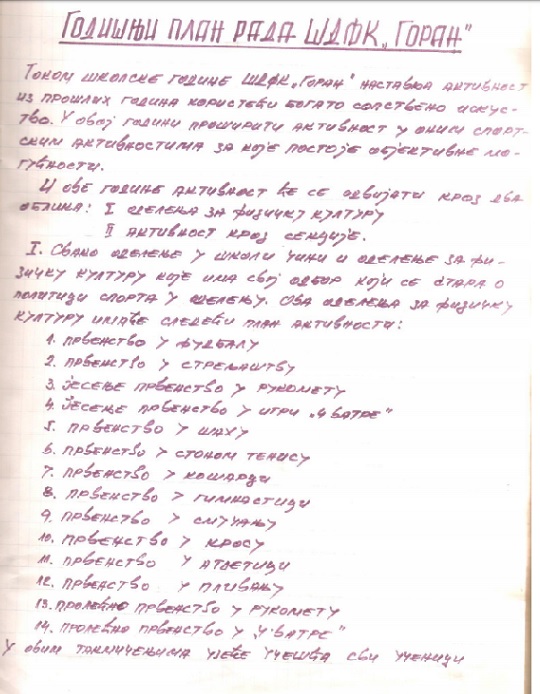 ГОДИШЊИ ПЛАН РАДА ШДФК „ГОРАН"
ТОКОМ ШКОЛСКЕ ГОДИНЕ ШДФК „ГОРАН" НАСТАВЉА АКТИВНОСТ
ИЗ ПРОШЛИХ ГОДИНА КОРИСТЕЋИ БОГАТО СОПСТВЕНО ИСКУС-
ТВО. У ОВОЈ ГОДИНИ ПРОШИРИТИ АКТИВНОСТ У ОНИМ СПОРТ-
СКИМ АКТИВНОСТИМА ЗА КОЈЕ ПОСТОЈЕ ОБЈЕКТИВНЕ МО-
ГУЋНОСТИ.
И ОВЕ ГОДИНЕ АКТИВНОСТ ЋЕ СЕ ОДВИЈАТИ КРОЗ ДВА
ОБЛИКА: I ОДЕЛЕЊА ЗА ФИЗИЧКУ КУЛТУРУ
II АКТИВНОСТ КРОЗ СЕКЦИЈЕ.
I. СВАКО ОДЕЛЕЊЕ У ШКОЛИ ЧИНИ И ОДЕЛЕЊЕ ЗА ФИ-
ЗИЧКУ КУЛТУРУ КОЈЕ ИМА СВОЈ ОДБОР КОЈИ СЕ СТАРА О
ПОЛИТИЦИ СПОРТА У ОДЕЛЕЊУ. ОВА ОДЕЛЕЊА ЗА ФИЗИЧКУ
КУЛТУРУ ИМАЋЕ СЛЕДЕЋИ ПЛАН АКТИВНОСТИ:
1. ПРВЕНСТВО У ФУДБАЛУ
2. ПРВЕНСТВО У СТРЕЉАШТВУ
3. ЈЕСЕЊЕ ПРВЕНСТВО У РУКОМЕТУ
4. ЈЕСЕЊЕ ПРВЕНСТВО У ИГРИ „4 ВАТРЕ"
5. ПРВЕНСТВО У ШАХУ
6. ПРВЕНСТВО У СТОНОМ ТЕНИСУ
7. ПРВЕНСТВО У КОШАРЦИ
8. ПРВЕНСТВО У ГИМНАСТИЦИ
9. ПРВЕНСТВО У СМУЧАЊУ
10. ПРВЕНСТВО У КРОСУ
11. ПРВЕНСТВО У АТЛЕТИЦИ
12. ПРВЕНСТВО У ПЛИВАЊУ
13. ПРОЛЕЋНО ПРВЕНСТВО У РУКОМЕТУ
14. ПРОЛЕЋНО ПРВЕНСТВО У „4 ВАТРЕ"
У ОВИМ ТАКМИЧЕЊИМА УЗЕЋЕ УЧЕШЋА СВИ УЧЕНИЦИ